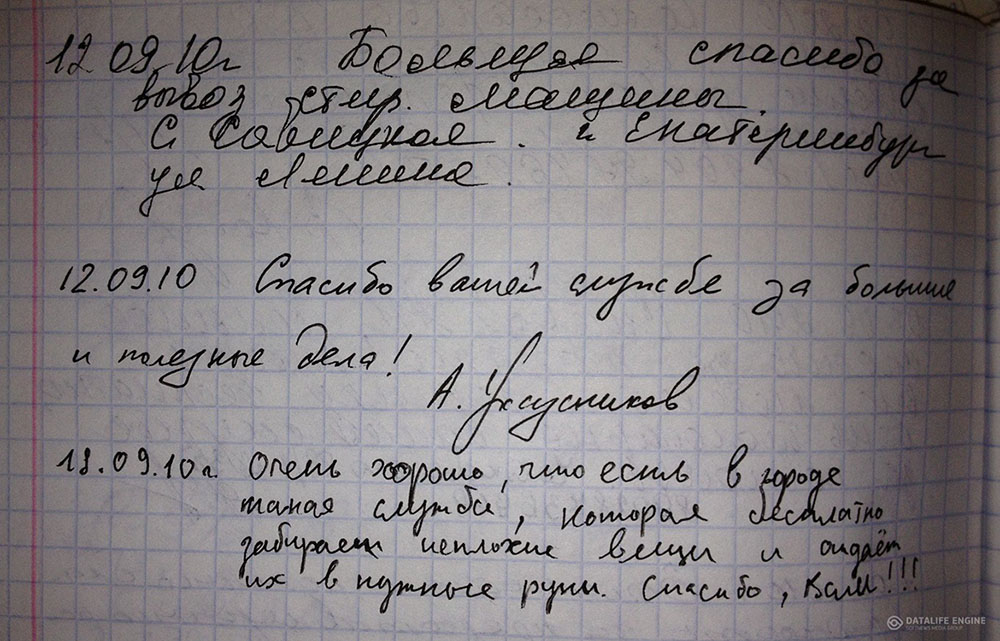 12.09.10г Большое спасибо за
вывоз стир. машины.
С Савицкая. г Екатеринбург
ул Ленина.
12.09.10 Спасибо вашей службе за большие
и полезные дела!
А. Уксусников
13.09.10г. Очень хорошо, что есть в городе
такая служба, которая бесплатно
забирает неплохие вещи и отдаёт
их в нужные руки. Спасибо, Вам!!!
DATALIFE ENGINE
SOFTNEWS MEDIA GROUP